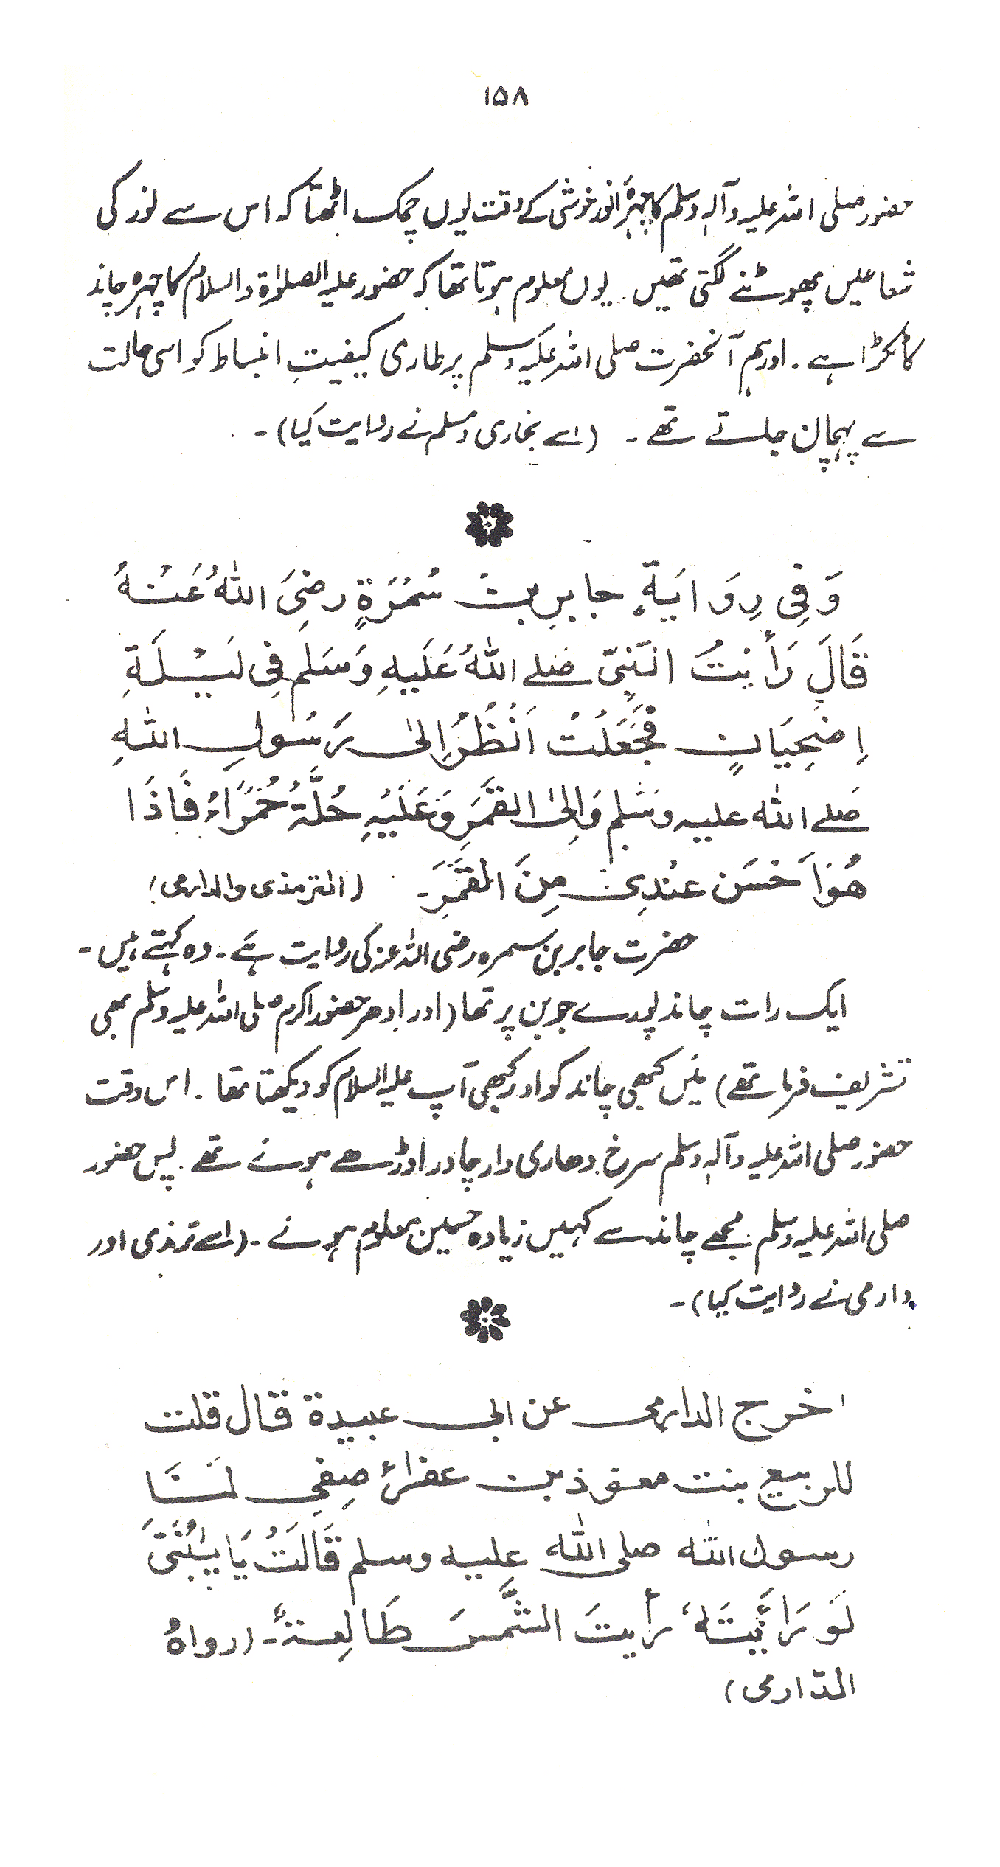 ۱۵۸
حضور صلی اللہ علیہ وآلہ وسلم کا چہرۂ انور خوشی کے وقت یوں چمک اٹھتا کہ اس سے نور کی
شعاعیں پھوٹنے لگتی تھیں۔ یوں معلوم ہوتا تھا کہ حضور علیہ الصلوٰۃ والسلام کا چہرہ چاند
کا ٹکڑا ہے۔ اور ہم آنحضرت صلی اللہ علیہ وسلم پر طاری کیفیتِ انبساط کو اسی حالت
سے پہچان جاتے تھے۔ (اسے بخاری و مسلم نے روایت کیا)۔
وَفِی رِوَایَةٍ جابر بن سُمُرَةٍ رضِیَ اللّٰہُ عَنْہُ
قَالَ رَأَیْتُ النَّبِیَّ صَلے اللّٰہُ عَلَیہِ وَسَلَم فِی لَیْلَةِ
اِضْحِیَانٍ فَجَعَلْتُ اَنْظُرُ اِلیٰ رَسُولِ اللّٰہِ
صَلے اللّٰہ علیہ وسَلم وَاِلیٰ القَمَرِ وَعَلَیْہِ حُلَّةُ حُمَرَاءُ فَاِذَا
ھُوَ اَحْسَن عِنْدِی مِنَ القَمَرَ۔ (الترمذی والدارمی)
حضرت جابر بن سمرہ رضی اللہ عنہ کی روایت ہے۔ وہ کہتے ہیں۔
ایک رات چاند پورے جوبن پر تھا (اور ادھر حضور اکرم صلی اللہ علیہ وسلم بھی
تشریف فرما تھے) میں کبھی چاند کو اور کبھی آپ علیہ السلام کو دیکھتا تھا۔ اس وقت
حضور صلی اللہ علیہ وآلہ وسلم سرخ دھاری دار چادر اوڑھے ہوئے تھے۔ پس حضور
صلی اللہ علیہ وسلم مجھے چاند سے کہیں زیادہ حسین معلوم ہوئے۔ (اسے ترمذی اور
دارمی نے روایت کیا)۔
اخرج الدارمی عن ابی عبیدة قال قلت
للربیع بنت معوذ بن عفراءَ صِفِی لَنَا
رسول اللہ صلی اللّٰہ علیہ وسلم قَالَتْ یَا بُنَیَّ
لَو رَأَیْتَہُ رأیتَ الشَّمسَ طَالِعةً۔ (رواہُ
الدّارمی)